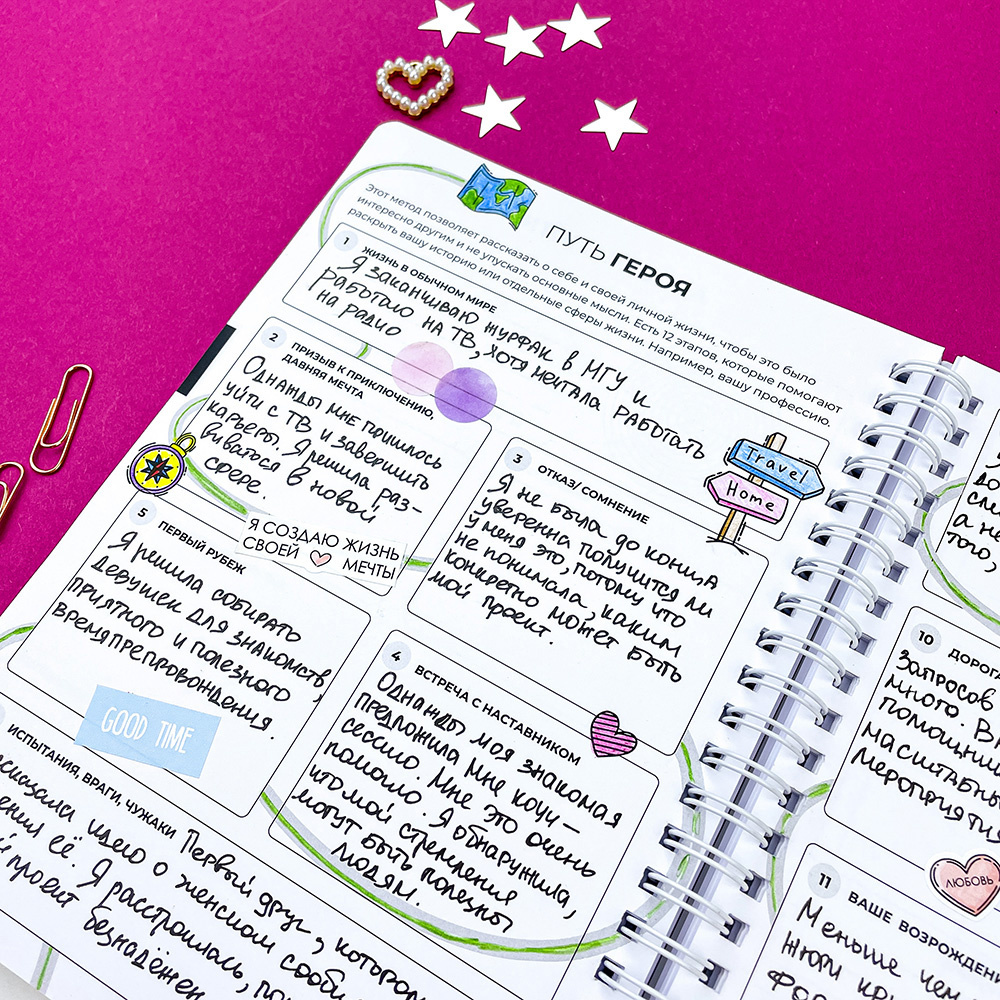 ПУТЬ ГЕРОЯ
Этот метод позволяет рассказать о себе и своей личной жизни, чтобы это было
интересно другим и не упускать основные мысли. Есть 12 этапов, которые помогают
раскрыть вашу историю или отдельные сферы жизни. Например, вашу профессию.
1 ЖИЗНЬ В ОБЫЧНОМ МИРЕ
Я заканчиваю журфак в МГУ и
работаю на ТВ, хотя мечтала работать
на радио
2 ПРИЗЫВ К ПРИКЛЮЧЕНИЮ,
ДАВНЯЯ МЕЧТА
Однажды мне пришлось
уйти с ТВ и завершить
карьеру. Я решила раз-
виваться в новой
сфере.
Travel
Home
3 ОТКАЗ/ СОМНЕНИЕ
Я не была до конца
уверенна получится ли
у меня это, потому что
не понимала, каким
конкретно может быть
мой проект.
Я СОЗДАЮ ЖИЗНЬ
СВОЕЙ МЕЧТЫ
5 ПЕРВЫЙ РУБЕЖ
Я решила собирать
девушек для знакомств,
приятного и полезного
времяпрепровождения.
GOOD TIME
4 ВСТРЕЧА С НАСТАВНИКОМ
Однажды моя знакомая
предложила мне коуч-
сессию. Мне это очень
помогло. Я обнаружила,
что мои стремления
могут быть полезны
людям.
ИСПЫТАНИЯ, ВРАГИ, ЧУЖАКИ
Первый друг, котором
идею о женском сооб
её. Я расстроилась, по
проект безнадёжен
а не
того,
10 ДОРОГА
Запросов
много. В
помощни
масштабн
мероприяти
ЛЮБОВЬ
11 ВАШЕ ВОЗРОЖДЕН
Меньше чем